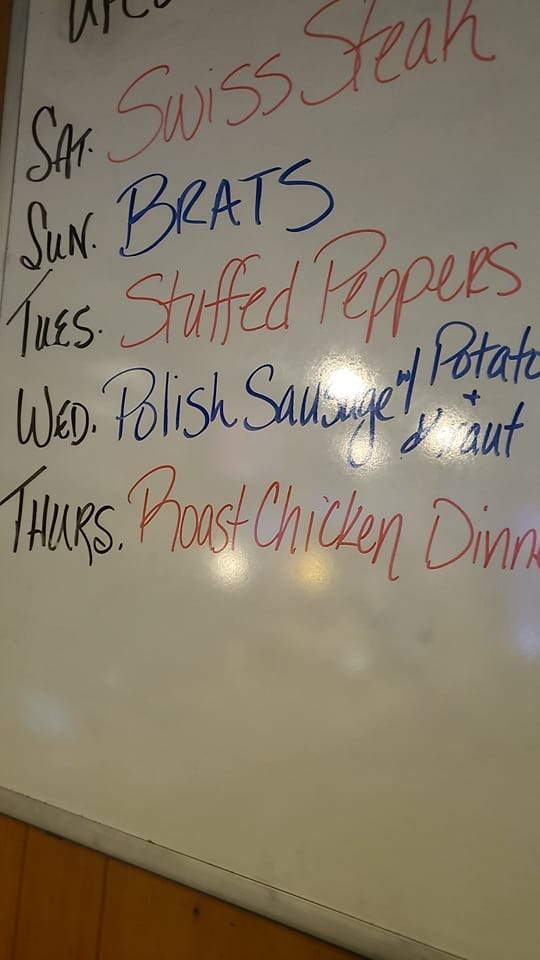 SAT. Swiss Steak
SUN. BRATS
TUES. Stuffed Peppers
WED. Polish Sausage w/ Potato
+ Kraut
THURS. Roast Chicken Dinn